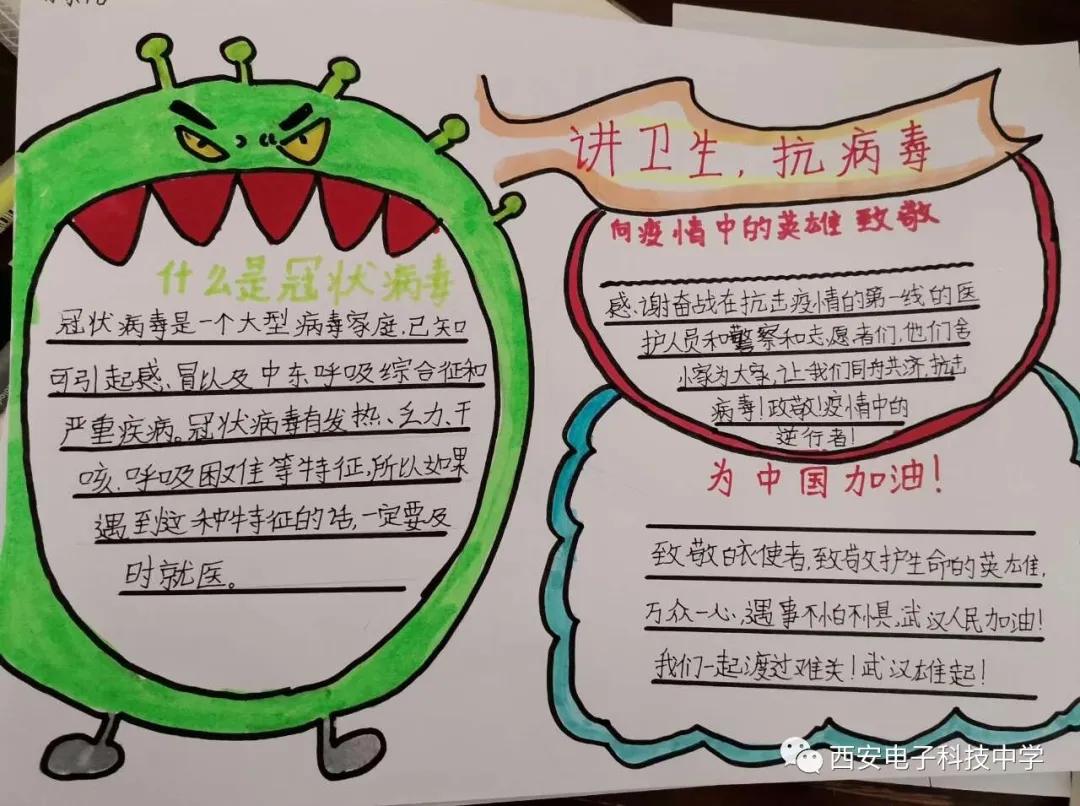 什么是冠状病毒
冠状病毒是一个大型病毒家庭,已知
可引起感、冒以及中东呼吸综合征和
严重疾病。冠状病毒有发热、乏力、干
咳、呼吸困难等特征,所以如果
遇到这种特征的话,一定要及
时就医。
讲卫生,抗病毒
向疫情中的英雄致敬
感、谢奋战在抗击疫情的第一线的医
护人员和警察和志愿者们,他们舍
小家为大家,让我们同舟共济,抗击
病毒!致敬!疫情中的
逆行者!
为中国加油!
致敬白衣使者,致敬护生命的英雄,
万众一心、遇事不怕不惧,武汉人民加油!
我们一起渡过难关!武汉雄起!
西安电子科技中学